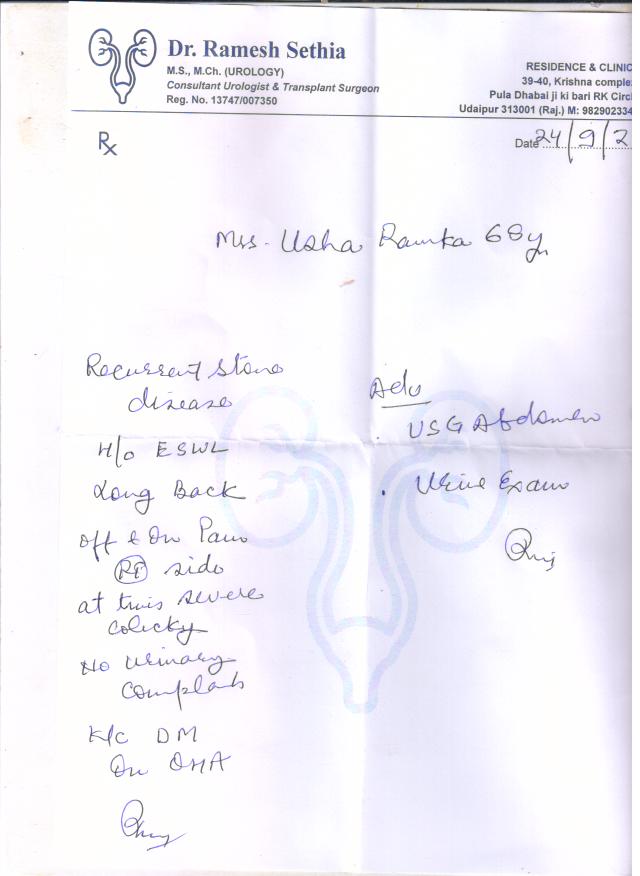 Dr. Ramesh Sethia
M.S., M.Ch. (UROLOGY)
Consultant Urologist & Transplant Surgeon
Reg. No. 13747/007350
RESIDENCE & CLINIC
39-40, Krishna comple
Pula Dhabai ji ki bari RK Circl
Udaipur 313001 (Raj.) M: 982902334
Rx
Date 24/9/2
Mrs. Usha Ramka 68y
Recurrent Stone
disease
H/o ESWL
Long Back
off & On Pain
RT side
at times severe
colicky
No Urinary
Complaints
K/c DM
On OHA
Adv
. USG Abdomen
. Urine Exam